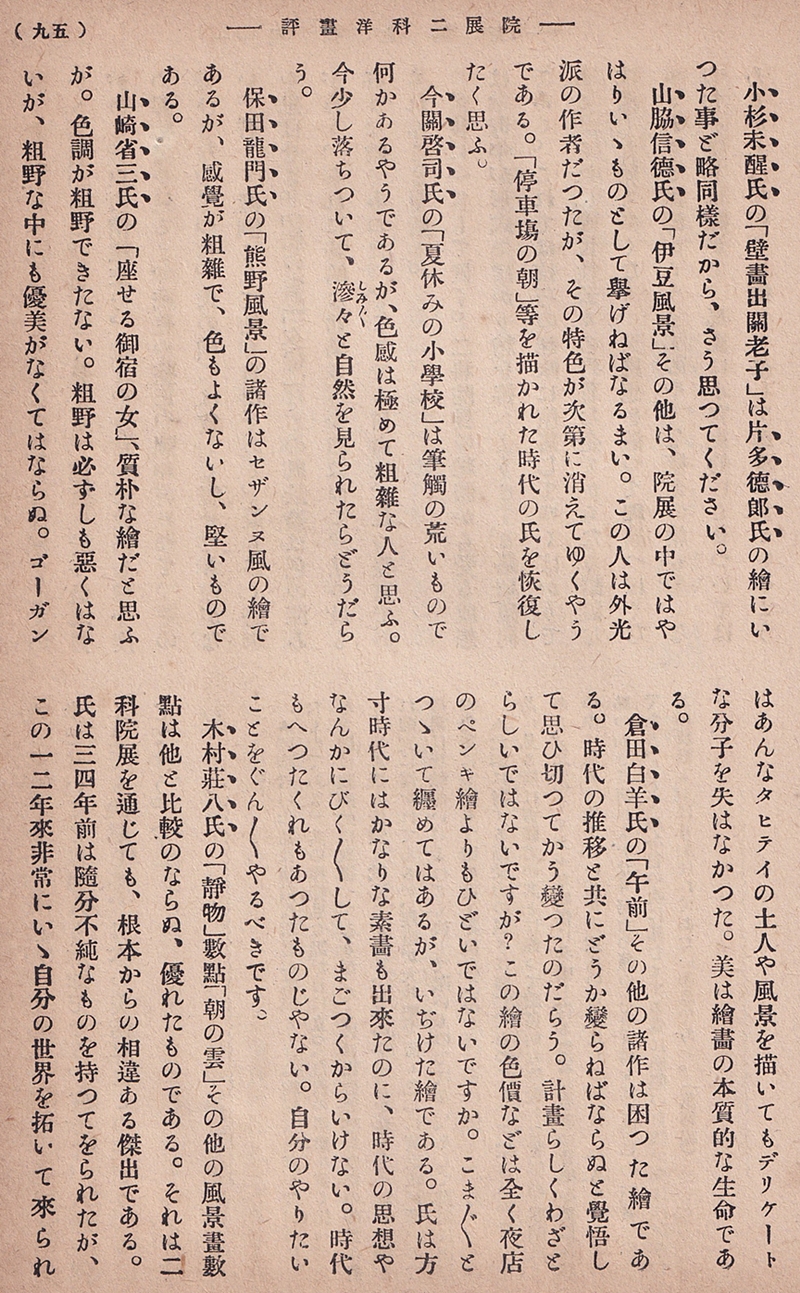 (五九)
— 院展二科洋畫評 —
小杉未醒氏の「壁畫出關老子」は片多德郞氏の繪にい
つた事と略同樣だから、さう思つてください。
山脇信德氏の「伊豆風景」その他は、院展の中ではや
はりいゝものとして擧げねばなるまい。この人は外光
派の作者だつたが、その特色が次第に消えてゆくやう
である。「停車塲の朝」等を描かれた時代の氏を恢復し
たく思ふ。
今關啓司氏の「夏休みの小學校」は筆觸の荒いもので
何かあるやうであるが、色感は極めて粗雜な人と思ふ。
今少し落ちついて、滲々と自然を見られたらどうだら
う。
保田龍門氏の「熊野風景」の諸作はセザンヌ風の繪で
あるが、感覺が粗雜で、色もよくないし、堅いもので
ある。
山崎省三氏の「座せる御宿の女」、質朴な繪だと思ふ
が。色調が粗野できたない。粗野は必ずしも惡くはな
いが、粗野な中にも優美がなくてはならぬ。ゴーガン
はあんなタヒテイの土人や風景を描いてもデリケート
な分子を失はなかつた。美は繪畫の本質的な生命であ
る。
倉田白羊氏の「午前」その他の諸作は困つた繪であ
る。時代の推移と共にどうか變らねばならぬと覺悟し
て思ひ切つてかう變つたのだらう。計畫らしくわざと
らしいではないですが？この繪の色價などは全く夜店
のペンキ繪よりもひどいではないですか。こま〴〵と
つゝいて纒めてはあるが、いぢけた繪である。氏は方
寸時代にはかなりな素畫も出來たのに、時代の思想や
なんかにびく〳〵して、まごつくからいけない。時代
もへつたくれもあつたものじやない。自分のやりたい
ことをぐん〳〵やるべきです。
木村莊八氏の「靜物」數點「朝の雲」その他の風景畫數
點は他と比較のならぬ、優れたものである。それは二
科院展を通じても、根本からの相違ある傑出である。
氏は三四年前は隨分不純なものを持つてをられたが、
この一二年來非常にいゝ自分の世界を拓いて來られ